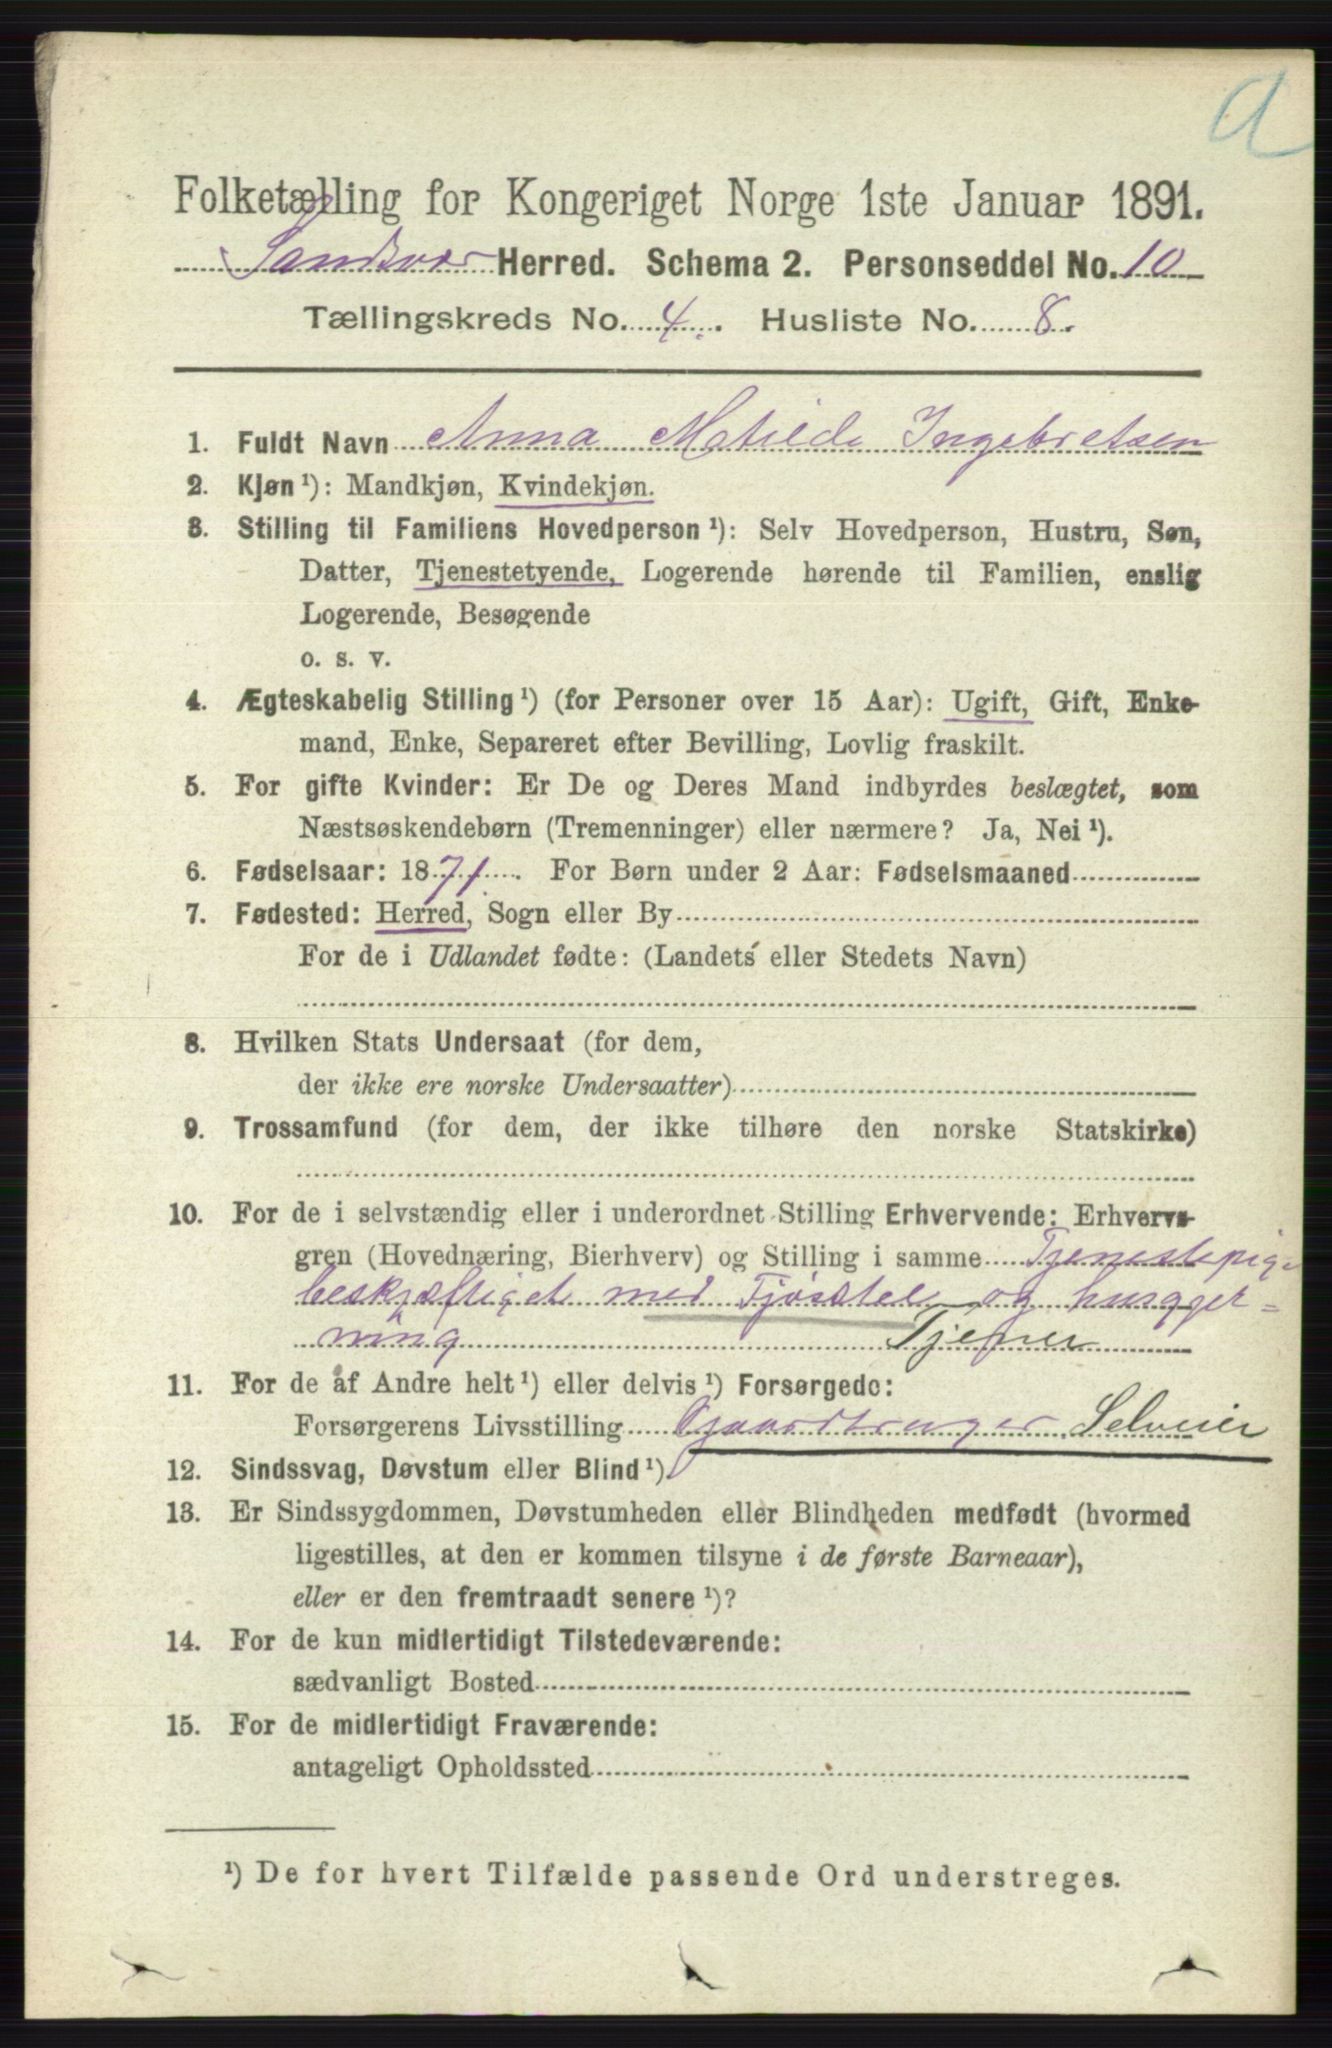 a
Folketælling for Kongeriget Norge 1ste Januar 1891.
Sandsvær Herred. Schema 2. Personseddel No. 10
Tællingskreds No. 4. Husliste No. 8.
1. Fuldt Navn Anna Matilde Ingebretsen
2. Kjøn ¹): Mandkjøn, Kvindekjøn.
3. Stilling til Familiens Hovedperson ¹): Selv Hovedperson, Hustru, Søn,
Datter, Tjenestetyende, Logerende hørende til Familien, enslig
Logerende, Besøgende
o. s. v.
4. Ægteskabelig Stilling ¹) (for Personer over 15 Aar): Ugift, Gift, Enke-
mand, Enke, Separeret efter Bevilling, Lovlig fraskilt.
5. For gifte Kvinder: Er De og Deres Mand indbyrdes beslægtet, som
Næstsøskendebørn (Tremenninger) eller nærmere? Ja, Nei ¹).
6. Fødselsaar: 1871. For Børn under 2 Aar: Fødselsmaaned
7. Fødested: Herred, Sogn eller By
For de i Udlandet fødte: (Landets eller Stedets Navn)
8. Hvilken Stats Undersaat (for dem,
der ikke ere norske Undersaatter)
9. Trossamfund (for dem, der ikke tilhøre den norske Statskirke)
10. For de i selvstændig eller i underordnet Stilling Erhvervende: Erhvervs-
gren (Hovednæring, Bierhverv) og Stilling i samme Tjenestepige
beskjæftiget med Fjøsstel og husgjer-
ning Tjener
11. For de af Andre helt ¹) eller delvis ¹) Forsørgede:
Forsørgerens Livsstilling Gaardbruger Selveier
12. Sindssvag, Døvstum eller Blind ¹).
13. Er Sindssygdommen, Døvstumheden eller Blindheden medfødt (hvormed
ligestilles, at den er kommen tilsyne i de første Barneaar),
eller er den fremtraadt senere ¹)?
14. For de kun midlertidigt Tilstedeværende:
sædvanligt Bosted
15. For de midlertidigt Fraværende:
antageligt Opholdssted
¹) De for hvert Tilfælde passende Ord understreges.